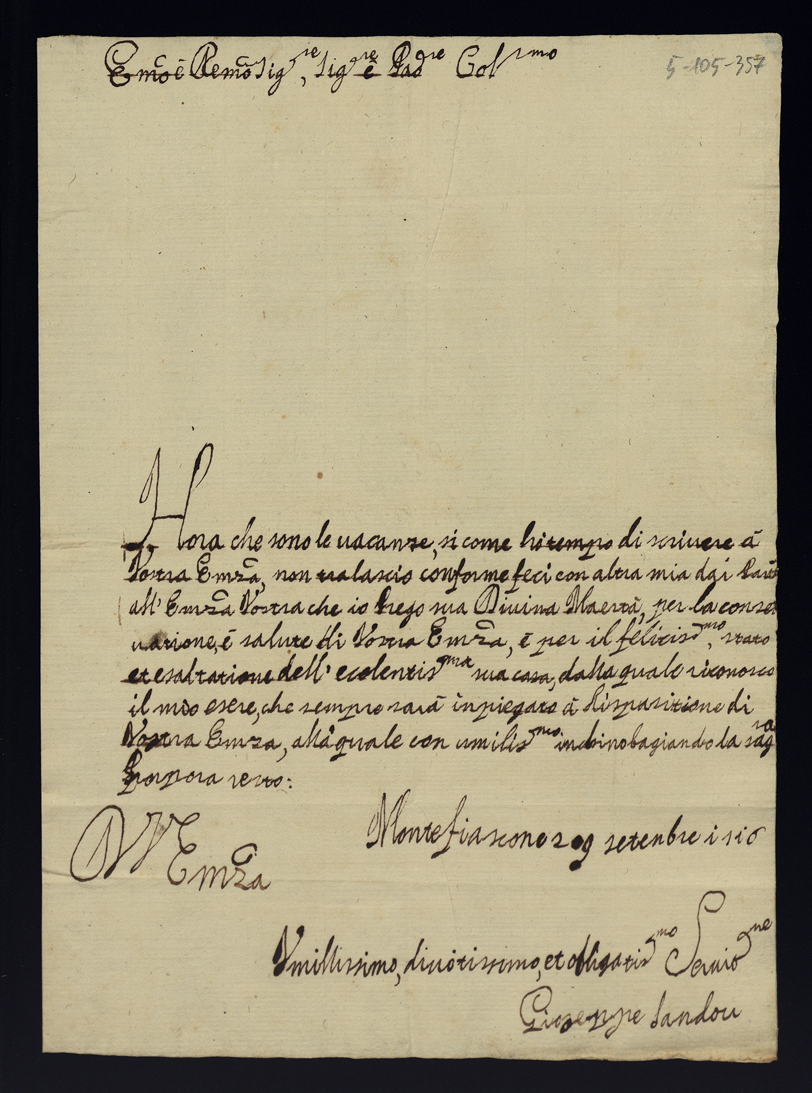 Emo è Remo Sig.re, Sig.re è Pad.re Col.mo
5-105-357
Hora che sono le uacanze, si come hò tempo di scriuere à
Vostra Emza, non tralascio conforme feci con altra mia dai
all' Emza Vostra che io prego sua Divina Maestà, per la conser
uazione, è salute di Vostra Emza, è per il felicis.mo, stato
et esaltatione dell' ecelentis.ma sua casa, dalla quale riconosco
il mio esere, che sempre sarà inpiegato à disposizione di
Vostra Emza, alla quale con umilis.mo inchino bagiando la sag.ra
porpora resto:
Montefiascone 29 setenbre
D V Emza
Vmillissimo, diuotissimo, et obligatis.mo Seruio.re
Gioseppe Sandou